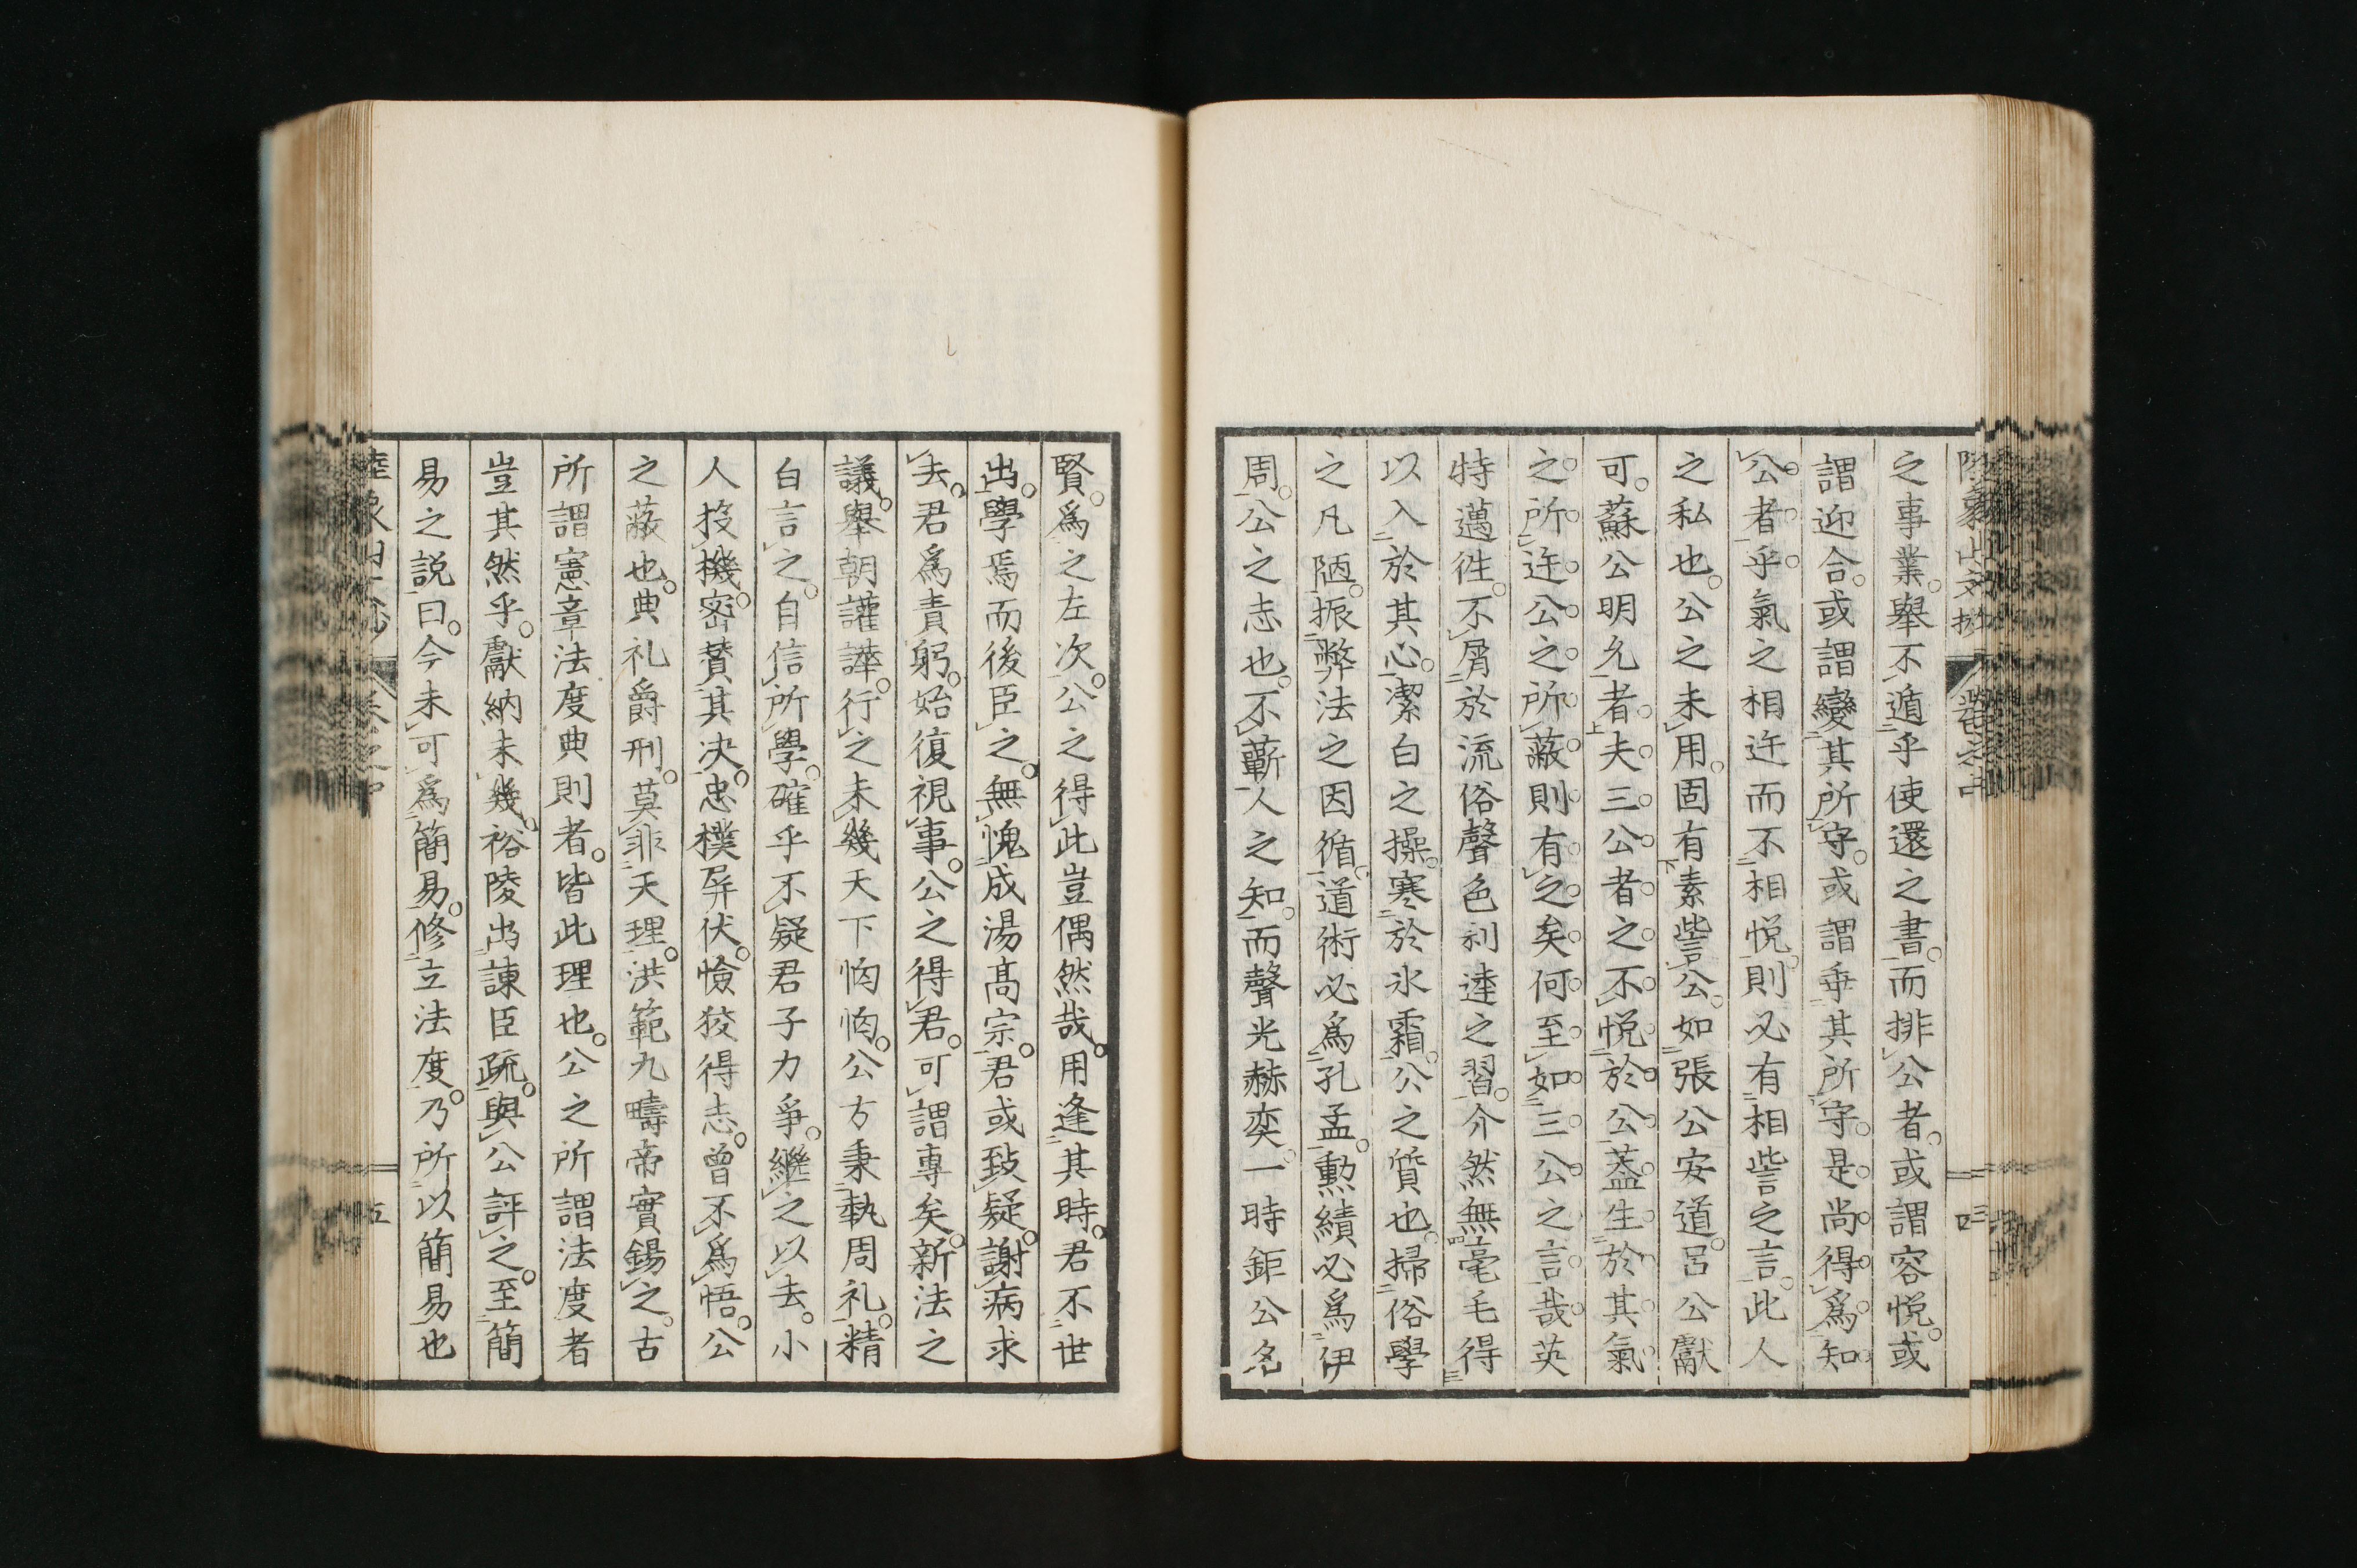 之事業。舉不遁乎使還之書。而排公者。或謂容悅。或
謂迎合。或謂變其所守。或謂乖其所守。是尚得爲知
公者乎。氣之相迕而不相悅。則必有相訾之言。此人
之私也。公之未用。固有素訾公。如張公安道。呂公獻
可。蘇公明允者。夫三公者之不悅於公。蓋生於其氣
之所迕。公之所蔽則有之矣。何至如三公之言哉。英
特邁徃。不屑於流俗聲色利逹之習。介然無毫毛得
以入於其心。潔白之操。寒於氷霜。公之質也。掃俗學
之凡陋。振弊法之因循。道術必爲孔孟。勲績必爲伊
周。公之志也。不蘄人之知。而聲光赫奕。一時鉅公名
賢。爲之左次。公之得此豈偶然哉。用逢其時。君不世
出。學焉而後臣之。無愧成湯高宗。君或致疑。謝病求
去。君爲責躬。始復視事。公之得君。可謂專矣。新法之
議。舉朝讙譁。行之未幾天下恟恟。公方秉執周礼。精
白言之。自信所學。確乎不疑君子力爭。繼之以去。小
人投機。密贊其决。忠樸屏伏。憸狡得志。曾不爲悟。公
之蔽也。典礼爵刑。莫非天理。洪範九疇帝實錫之。古
所謂憲章法度典則者。皆此理也。公之所謂法度者
豈其然乎。獻納未幾。裕陵出諫臣疏。與公評之。至簡
易之說曰。今未可爲簡易。修立法度。乃所以簡易也
五